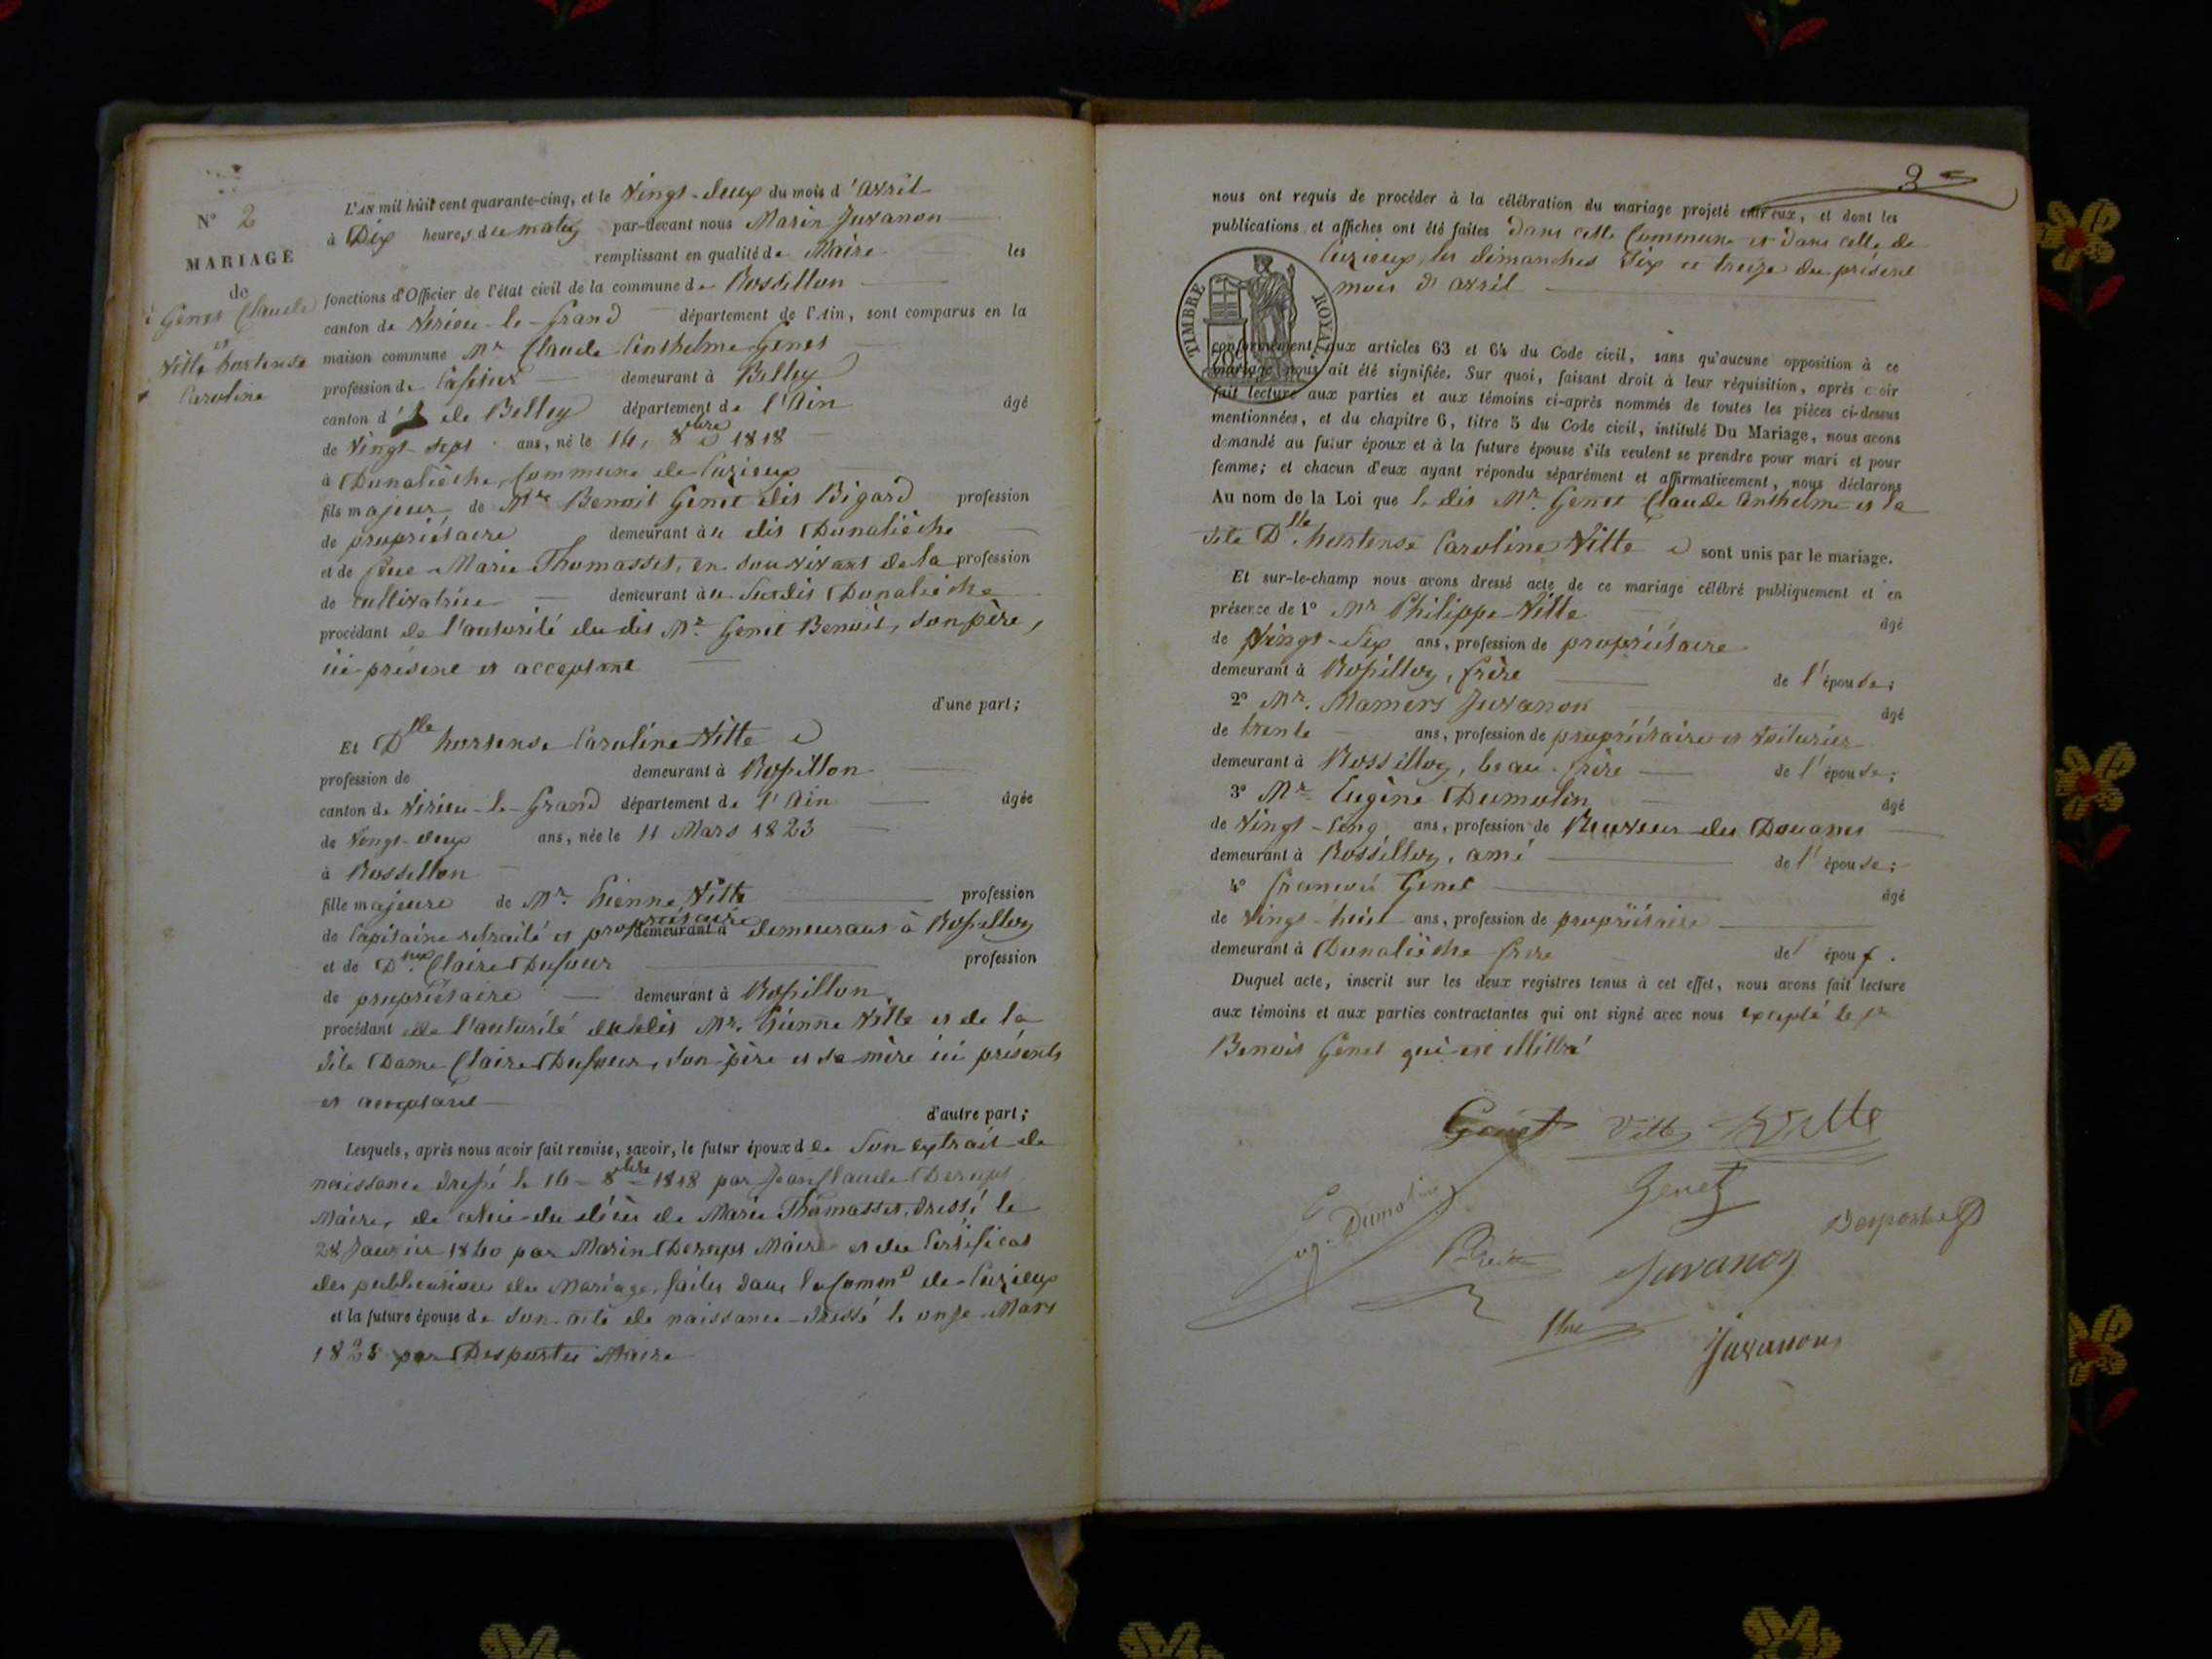 N° 2
MARIAGE
de
Genet Claude
et
Vitte hortense
Caroline
L'AN mil huit cent quarante-cinq, et le Vingt-deux du mois d'avril
à Dix heures du matin par-devant nous Marin Juvanon
remplissant en qualité de Maire les
fonctions d'Officier de l'état civil de la commune de Rossillon
canton de Virieu-le-Grand département de l'Ain, sont comparus en la
maison commune Mr Claude Anthelme Genet
profession de Cafetier demeurant à Belley
canton d de Belley département de l'Ain âgé
de Vingt-sept ans, né le 16, 8bre 1818
à Dunalièche, Commune de Cuzieux
fils majeur de Mr Benoit Genet dit Bigard profession
de propriétaire demeurant à u dit Dunalièche
et de feue Marie Thomasset, en son vivant de la profession
de cultivatrice demeurant à u susdit Dunalièche
procédant de l'autorité du dit Mr. Genet Benoit, son père,
ici présent et acceptant
d'une part;
Et Dlle hortense Caroline Vitte
profession de demeurant à Rossillon
canton de Virieu-le-Grand département de l'Ain âgée
de Vingt-deux ans, née le 11 Mars 1823
à Rossillon
fille majeure de Mr. Etienne Vitte profession
de Capitaine retraité et propriétaire demeurant à demeurant à Rossillon
et de Dme Claire Dufour profession
de propriétaire demeurant à Rossillon
procédant de l'autorité du dit Mr. Etienne Vitte et de la
dite Dame Claire Dufour, son père et sa mère ici présents
et acceptant
d'autre part;
Lesquels, après nous avoir fait remise, savoir, le futur époux de Son extrait de
naissance dressé le 16 8bre 1818 par Jean Claude
Maire, de celui du décès de Marie Thomasset, dressé le
28 Janvier 1840 par Marin Maire et du Certificat
des publications du Mariage, faites dans la Comme de Cuzieux
et la future épouse de son acte de naissance dressé le onze Mars
1823 par Desportes Maire
2
nous ont requis de procéder à la célébration du mariage projeté entr'eux, et dont les
publications et affiches ont été faites dans cette Commune et dans celle de
Cuzieux, les dimanches Six et treize du présent
mois d'avril
TIMBRE ROYAL.
70
conformément aux articles 63 et 64 du Code civil, sans qu'aucune opposition à ce
mariage nous ait été signifiée. Sur quoi, faisant droit à leur réquisition, après avoir
fait lecture aux parties et aux témoins ci-après nommés de toutes les pièces ci-dessus
mentionnées, et du chapitre 6, titre 5 du Code civil, intitulé Du Mariage, nous avons
demandé au futur époux et à la future épouse s'ils veulent se prendre pour mari et pour
femme; et chacun d'eux ayant répondu séparément et affirmativement, nous déclarons
Au nom de la Loi que le dit Mr. Genet Claude Anthelme et la
dite Dlle hortense Caroline Vitte sont unis par le mariage.
Et sur-le-champ nous avons dressé acte de ce mariage célébré publiquement et en
présence de 1° Mr Philippe Vitte âgé
de Vingt-Six ans, profession de propriétaire
demeurant à Rossillon, frère de l'épouse;
2° Mr. Mamers Juvanon âgé
de trente ans, profession de propriétaire et Voiturier
demeurant à Rossillon, beau-frère de l'épouse;
3° Mr. Eugène Dumolin âgé
de Vingt-Cinq ans, profession de Receveur des Douanes
demeurant à Rossillon, ami de l'épouse;
4° François Genet âgé
de Vingt-huit ans, profession de propriétaire
demeurant à Dunalièche frère de l'époux.
Duquel acte, inscrit sur les deux registres tenus à cet effet, nous avons fait lecture
aux témoins et aux parties contractantes qui ont signé avec nous excepté le sr
Benoit Genet qui est illitré
Genet Vitte Vitte
Genet
Eug. Dumolin
Desportes
Juvanon
Juvanon